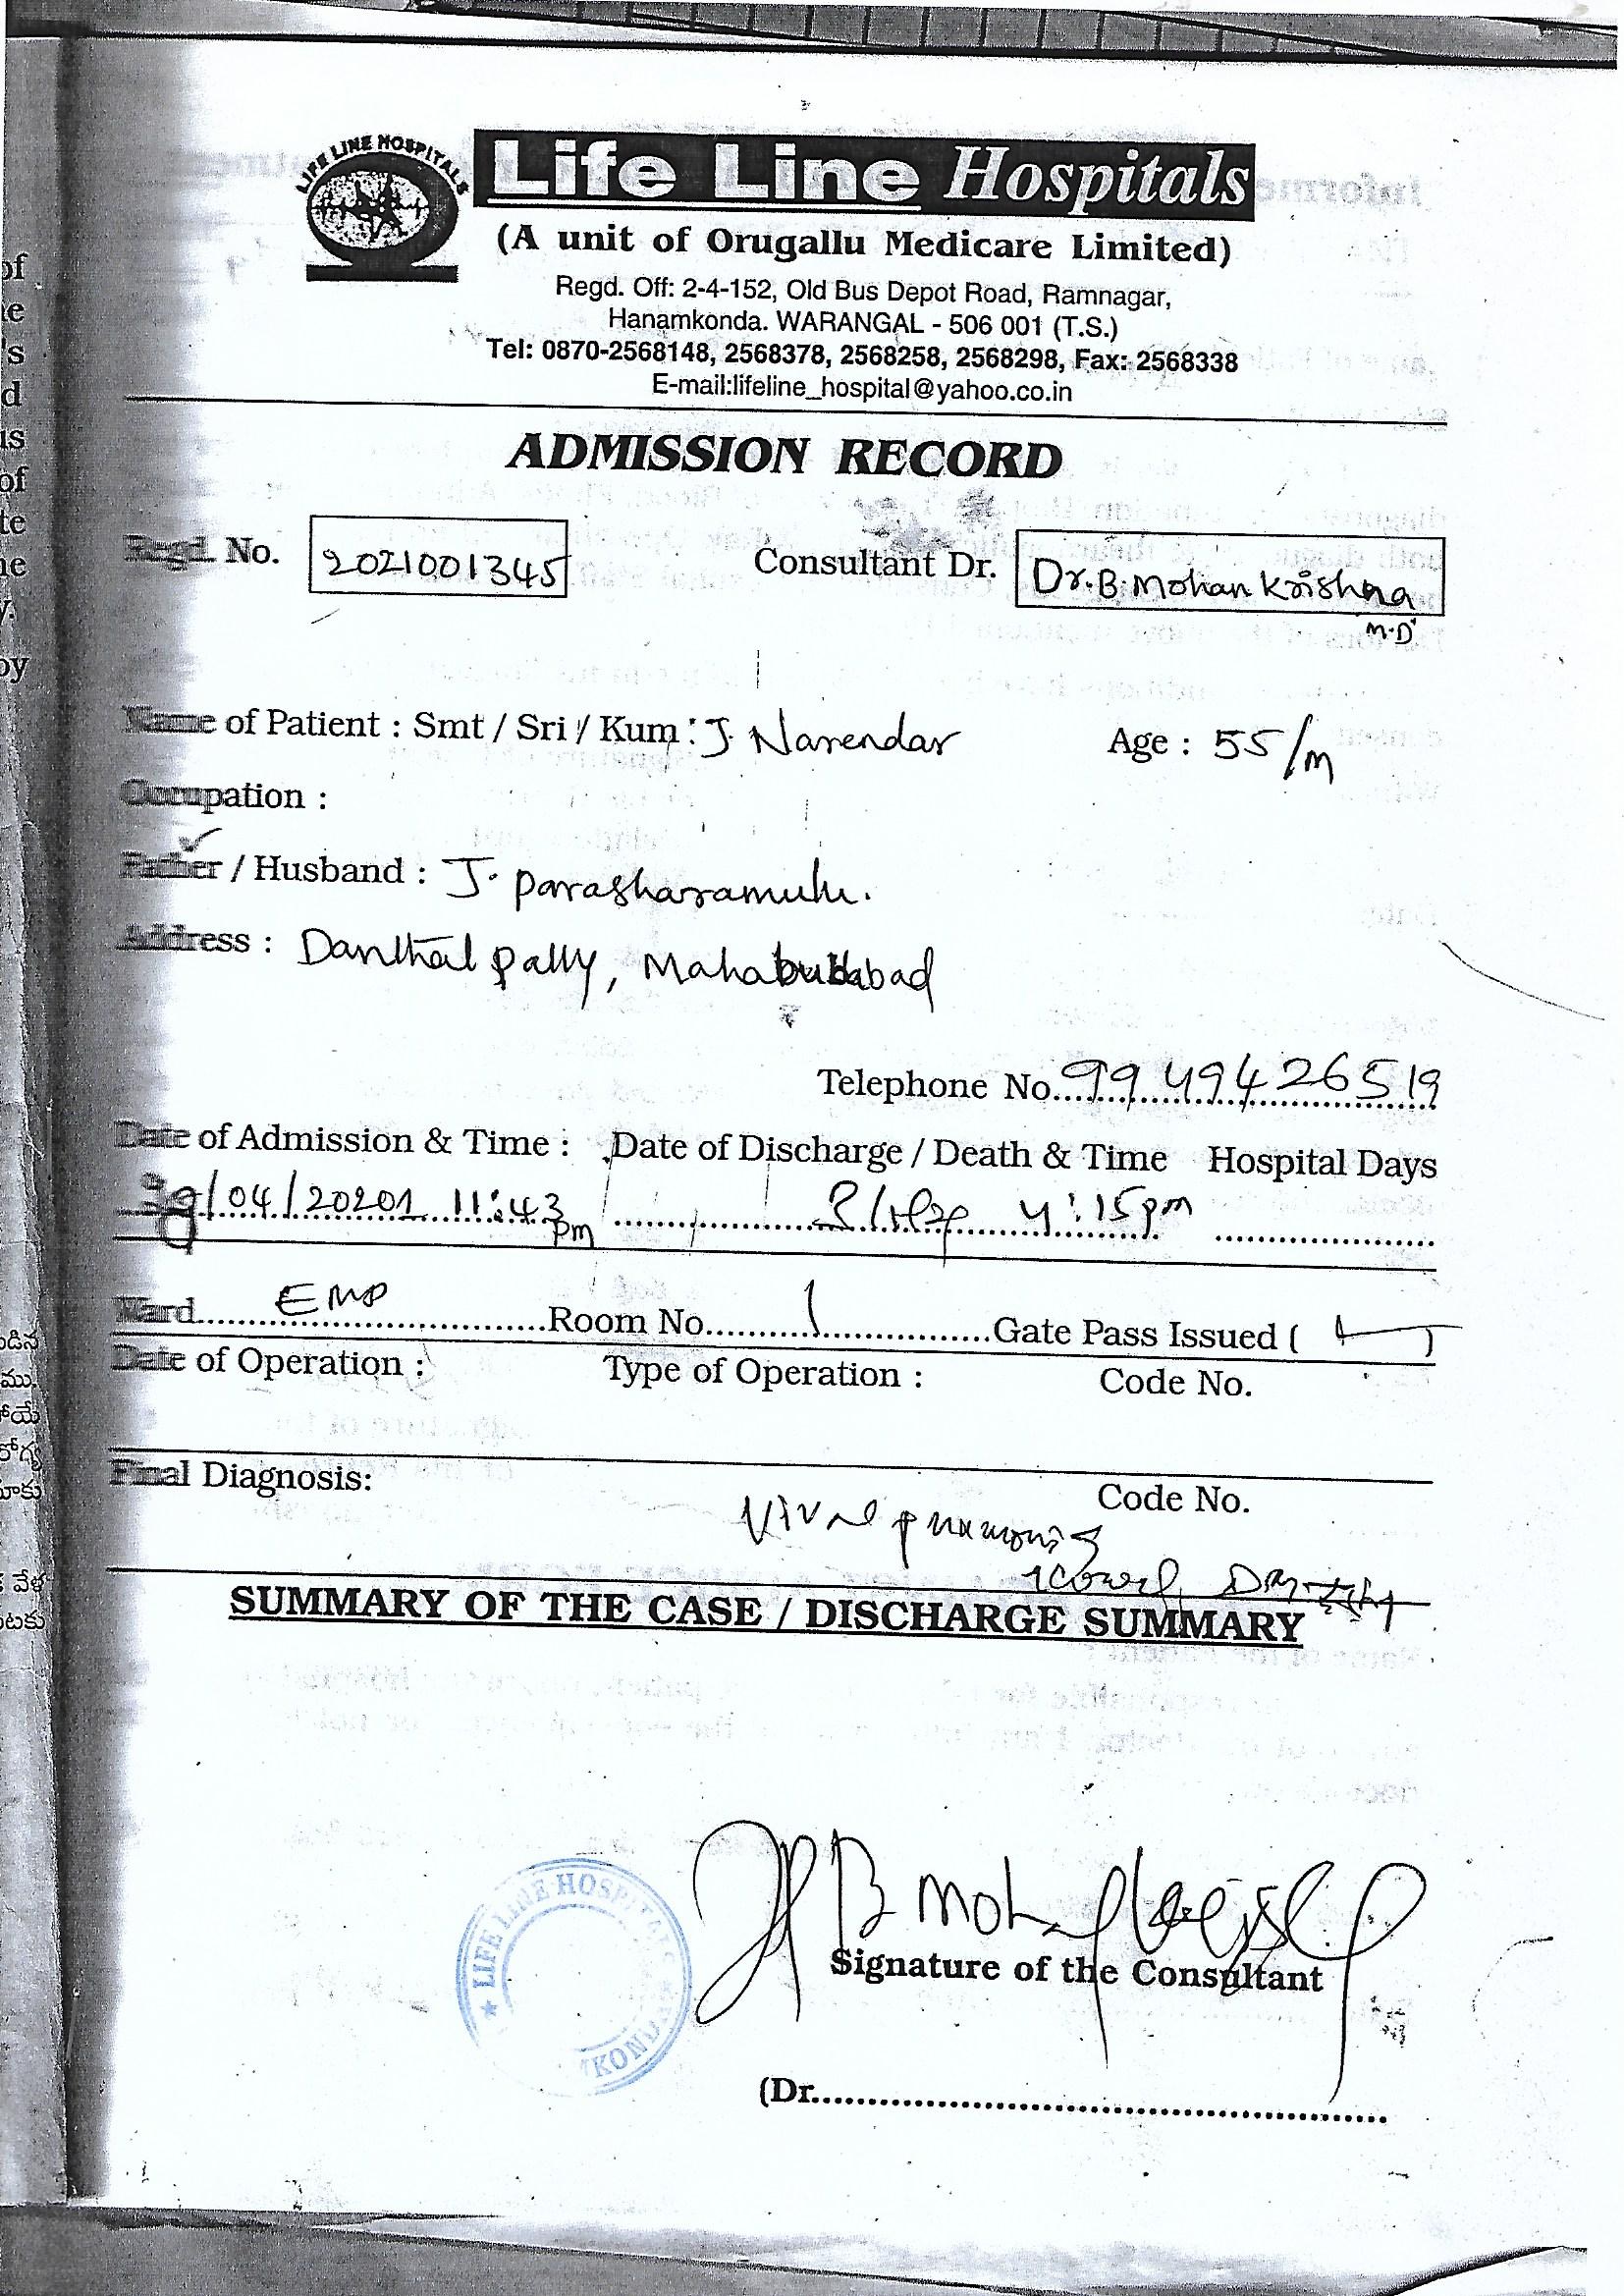 LIFE LINE HOSPITALS
Life Line Hospitals
(A unit of Orugallu Medicare Limited)
Regd. Off: 2-4-152, Old Bus Depot Road, Ramnagar,
Hanamkonda. WARANGAL - 506 001 (T.S.)
Tel: 0870-2568148, 2568378, 2568258, 2568298, Fax: 2568338
E-mail:lifeline_hospital@yahoo.co.in
ADMISSION RECORD
Regd. No. 2021001345 Consultant Dr. Dr. B. Mohan Krishna
M.D
Name of Patient : Smt / Sri / Kum : J. Narendar Age : 55/M
Occupation :
Father / Husband : J. Parasharamulu.
Address : Danthal pally, Mahabubabad
Telephone No. 9949426519
Date of Admission & Time : Date of Discharge / Death & Time Hospital Days
/04/20201 11:43 pm 4:15pm
Ward Room No. 1 Gate Pass Issued ( )
Date of Operation : Type of Operation : Code No.
Final Diagnosis: Code No.
Viral pneumonia
SUMMARY OF THE CASE / DISCHARGE SUMMARY
LIFE LINE HOSPITALS
Signature of the Consultant
(Dr.